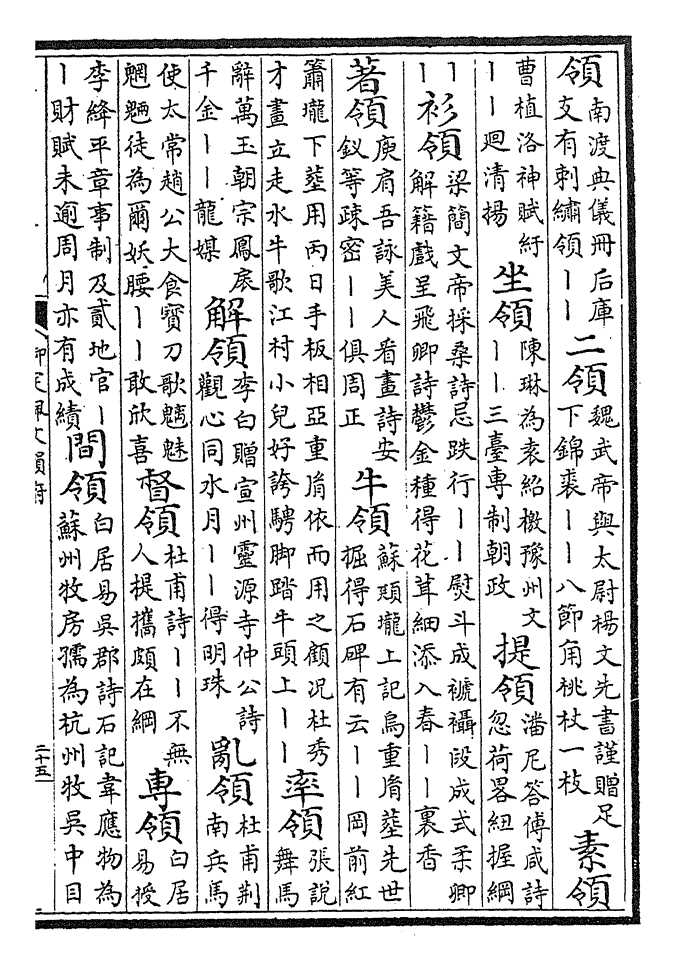 領南渡典儀冊后庫支有刺繡領丨丨二領魏武帝與太尉楊文先書謹贈足下錦裘丨丨八節角桃杖一枝素領
曹植洛神賦紆丨丨廻清揚坐領陳琳為袁紹檄豫州文丨丨三臺專制朝政提領潘尼答傅咸詩忽荷畧紐握綱
丨丨衫領梁簡文帝採桑詩忌跌行丨丨熨斗成褫襵段成式柔卿解籍戲呈飛卿詩鬱金種得花茸細添入春丨丨裏香
著領庾肩吾詠美人看畫詩安釵等疎密丨丨俱周正牛領蘇頲壠上記烏重胤葬先世掘得石碑有云丨丨岡前紅
簫壠下葬用丙日手板相亞重胤依而用之顧況杜秀才畫立走水牛歌江村小兒好誇騁脚踏牛頭上丨丨率領張說舞馬
辭萬玉朝宗鳳扆千金丨丨龍媒解領李白贈宣州靈源寺仲公詩觀心同水月丨丨得明珠亂領杜甫荆南兵馬
使太常趙公大食寶刀歌魑魅魍魎徒為爾妖腰丨丨敢欣喜督領杜甫詩丨丨不無人提攜頗在綱專領白居易授
李絳平章事制及貳地官丨丨財賦未逾周月亦有成績間領白居易吳郡詩石記韋應物為蘇州牧房孺為杭州牧吳中目
御定佩文韻府
二十五